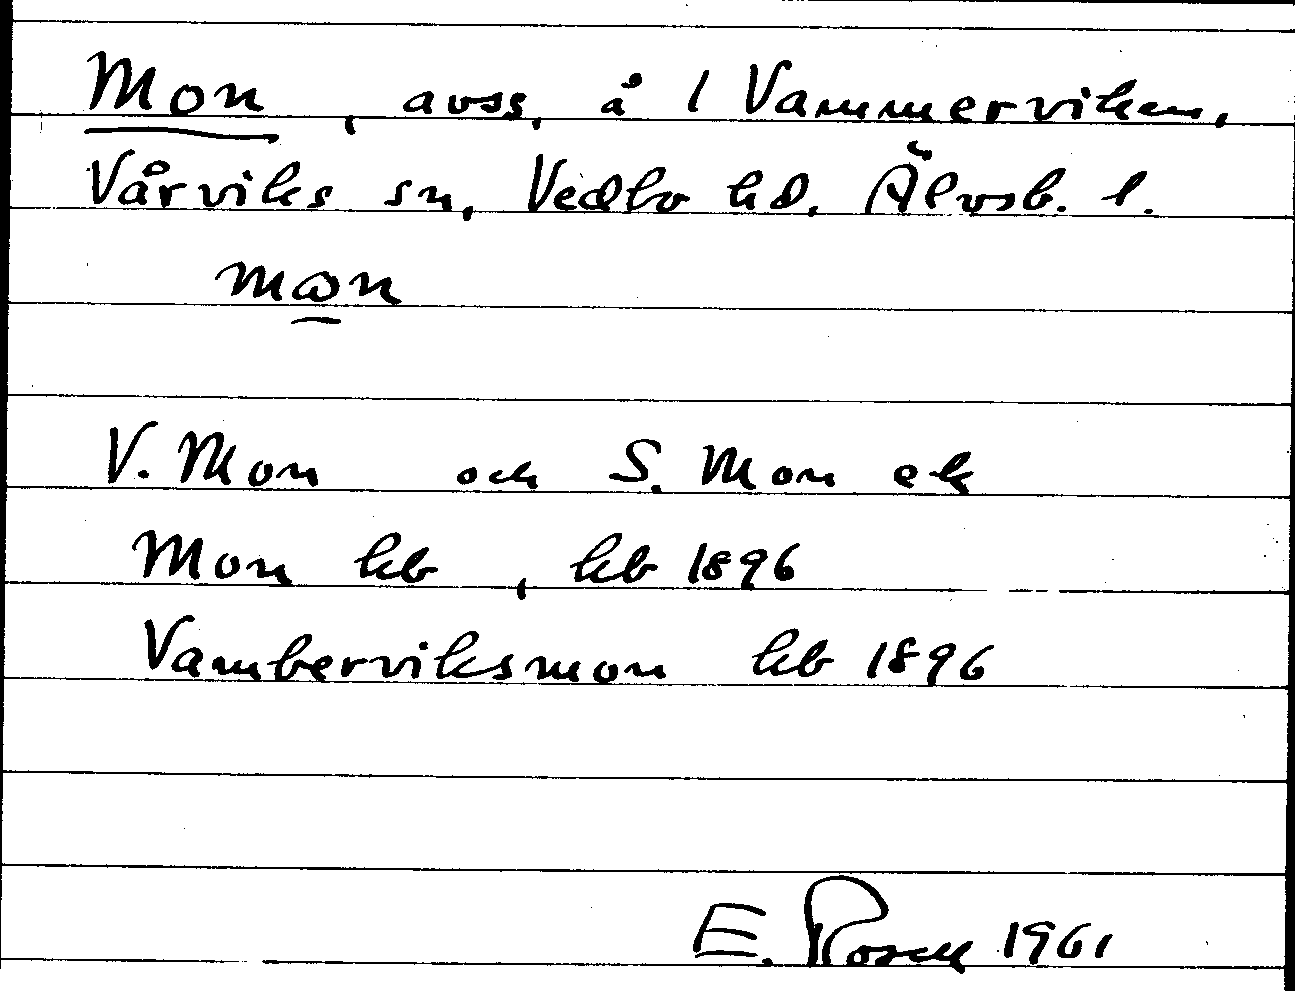 Mon, avss. å 1 Vammerviken,
Vårviks sn, Vedbo hd. Älvsb. l.
V. Mon och S. Mon ek
Mon kb, kb 1896
Vamberviksmon kb 1896
E. Rosell 1961